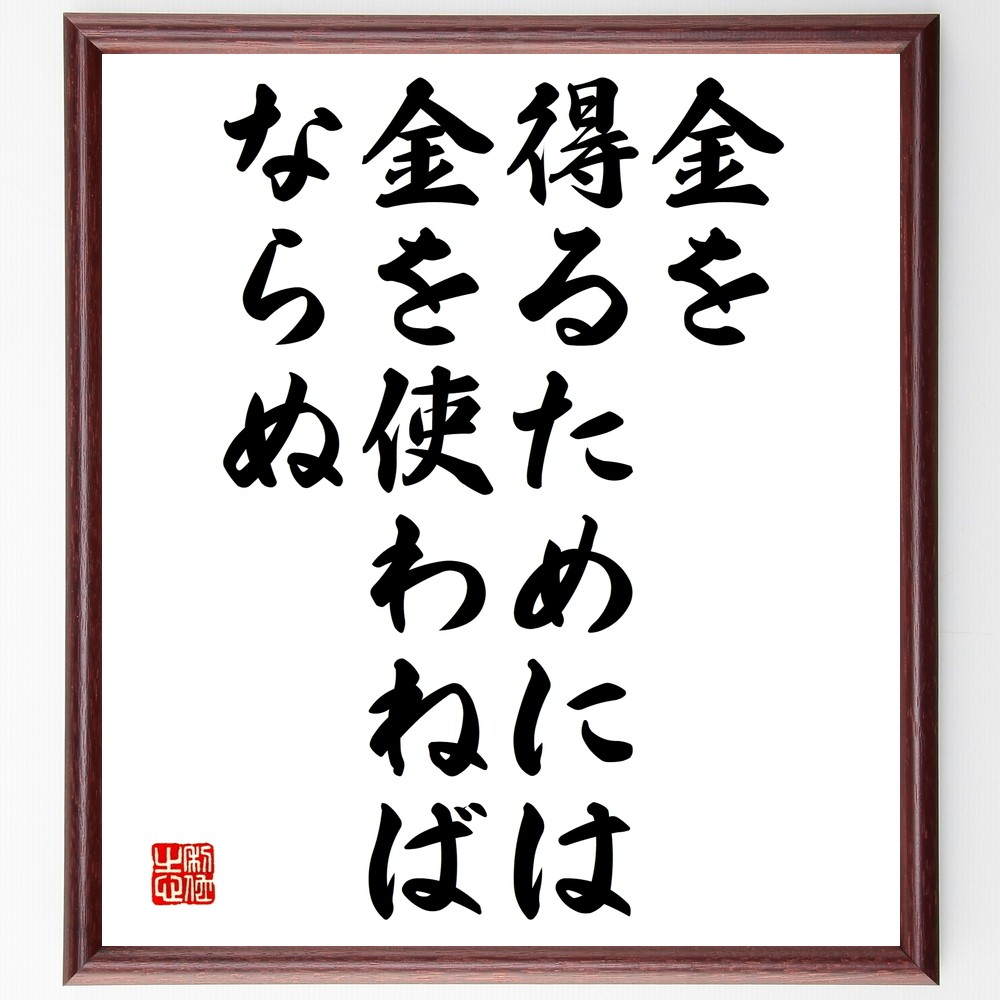 金を
得るためには
金を使わねば
ならぬ